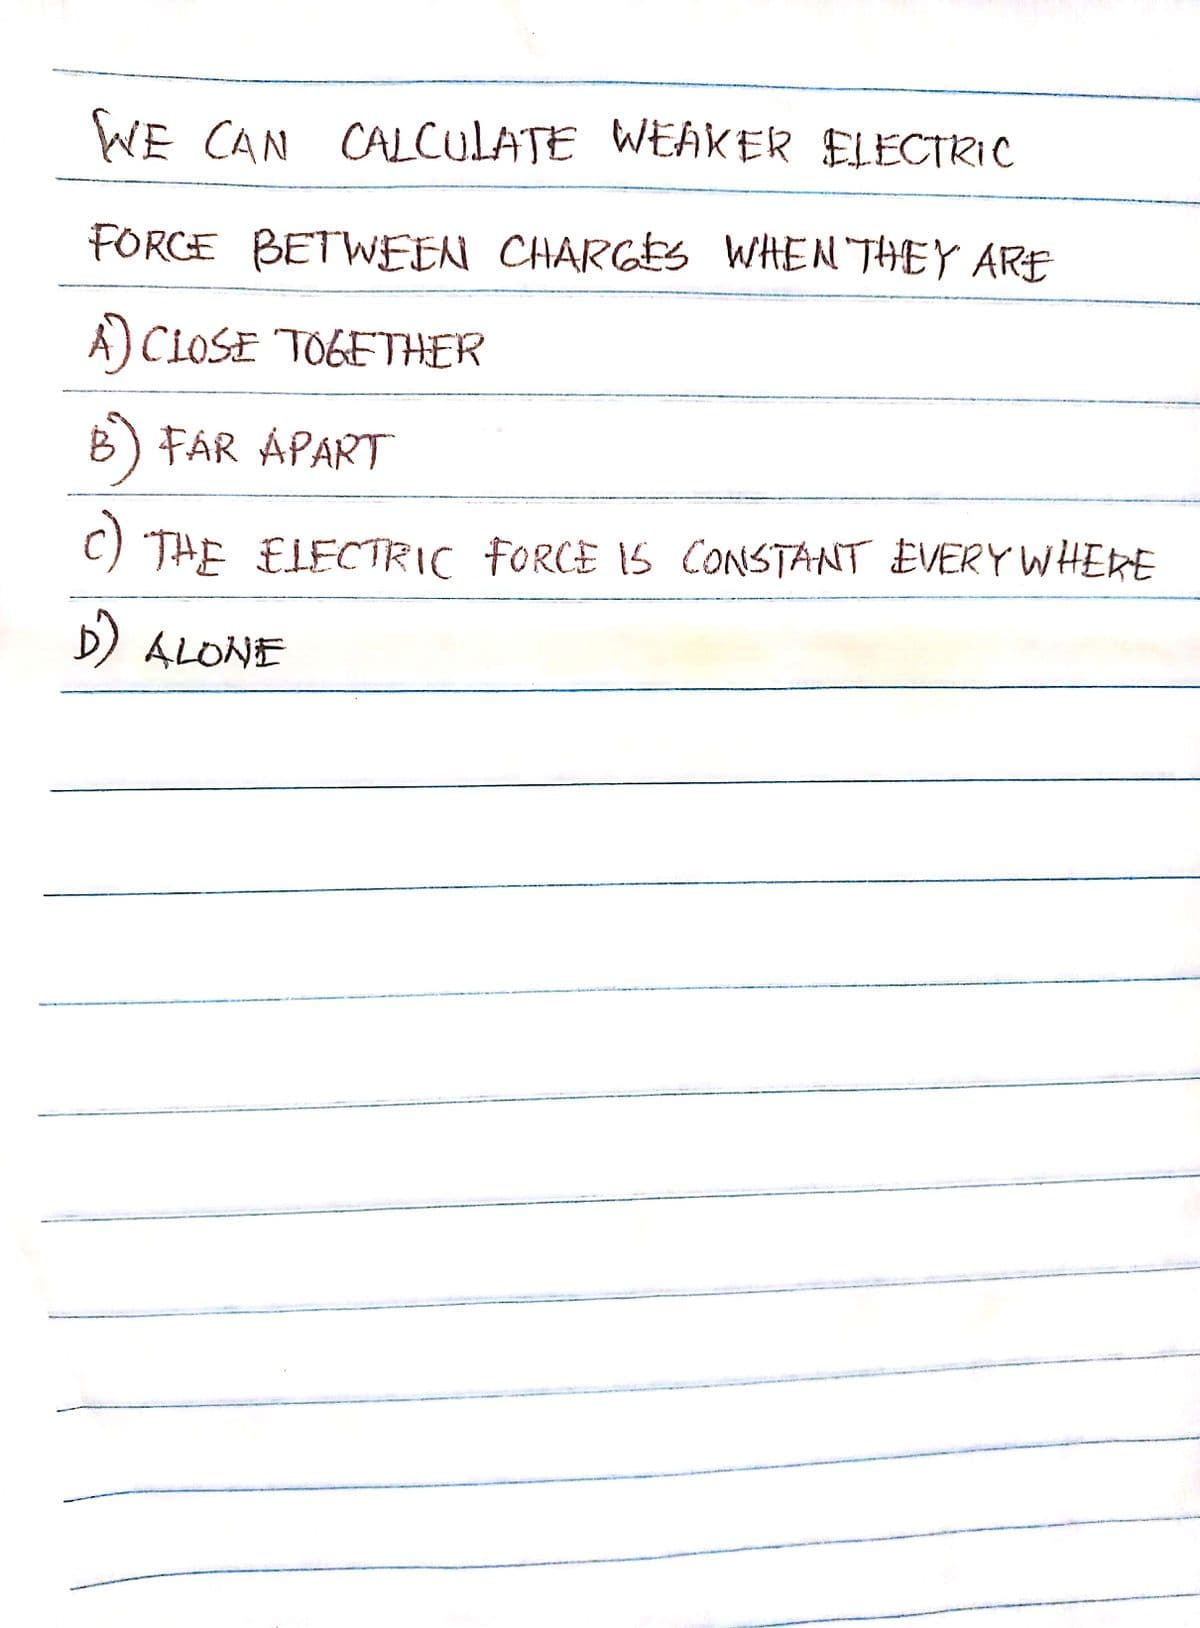 WE CAN CALCULATE WEAKER ELECTRIC
FORCE BETWEEN CHARGES WHEN THEY ARE
A) CLOSE TOGETHER
B) FAR APART
C) THE ELECTRIC FORCE IS CONSTANT EVERYWHERE
D) ALONE